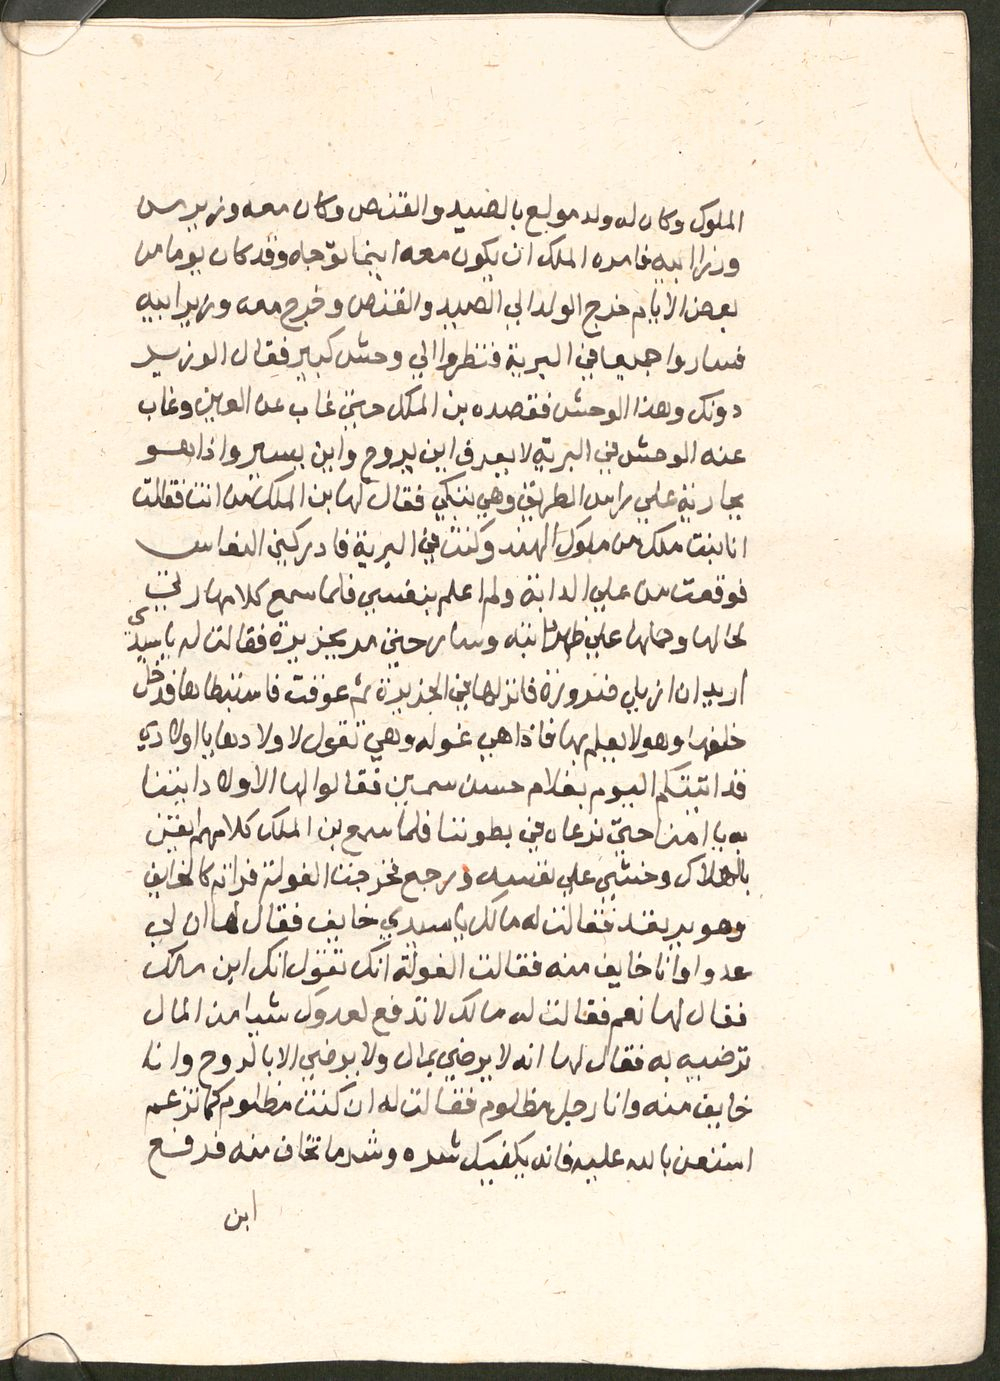 الملوك وكان له ولد مولع بالصيد والقنص وكان معه وزير من
وزرا ابيه فامره الملك ان يكون معه اينما توجاه وقد كان يوما من
بعض الايام خرج الولد الي الصيد والقنص وخرج معه وزير ابيه
فساروا جميعا في البرية فنظروا الي وحش كبير فقال الوزير
دونك وهذا الوحش فقصده بن الملك حتي غاب عن العين وغاب
عنه الوحش في البرية لا يعرف اين يروح واين يسير واذا هو
بجارية علي راس الطريق وهي تبكي فقال لها بن الملك من انت فقالت
انا بنت ملك من ملوك الهند وكنت في البرية فادركني النعاس
فوقعت من علي الدابة ولم اعلم بنفسي فلما سمع كلامها رثي
لحالها وحملها علي ظهر دابته وسار حتي مر بجزيرة فقالت له يا سيدي
اريد ان ازيل ضرورة فانزلها في الجزيرة ثم عوقت فاستبطاها فدخل
خلفها وهو لا يعلم بها فاذا هي غوله وهي تقول لاولادها يا اولادي
قد اتيتكم اليوم بغلام حسن سمين فقالوا لها الاولاد ايتينا
به يا امنا حتي نرعاه في بطوننا فلما سمع بن الملك كلامهم ايقن
بالهلاك وخشي علي نفسه ورجع فخرجت الغولة فراته كالخايف
وهو يرتعد فقالت له مالك يا سيدي خايف فقال لها ان لي
عدوا وانا خايف منه فقالت الغولة انك تقول انك ابن ملك
فقال لها نعم فقالت له مالك لا تدفع لعدوك شيا من المال
ترضيه به فقال لها انه لا يرضي بمال ولا يرضي الا بالروح وانا
خايف منه وانا رجل مظلوم فقالت له ان كنت مظلوم كما تزعم
استعن بالله عليه فانه يكفيك شره وشر ما تخاف منه فرفع
ابن